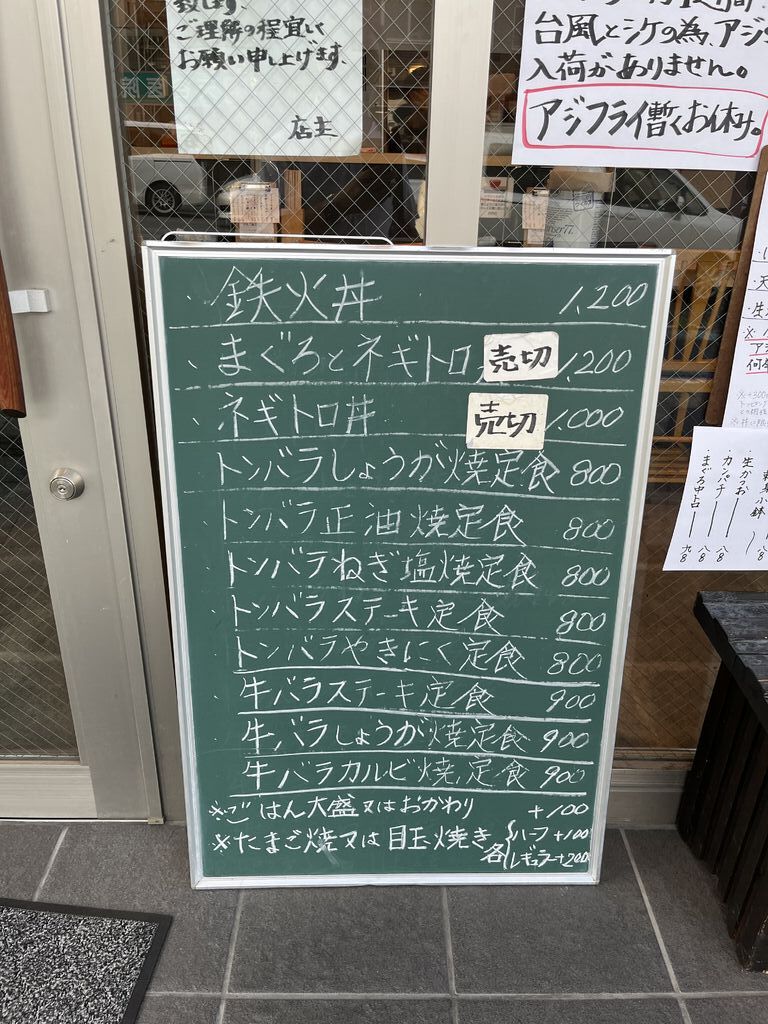 致します。
ご理解の程宜しく
お願い申し上げます。
店主
台風とシケの為、アジの
入荷がありません。
アジフライ暫くお休み。
医院
、鉄火丼 1,200
、まぐろとネギトロ 売切 1,200
、ネギトロ丼 売切 1.000
トンバラしょうが焼定食 800
トンバラ正油焼定食 800
トンバラねぎ塩焼定食 800
トンバラステーキ定食 800
トンバラやきにく定食 800
牛バラステーキ定食 900
牛バラしょうが焼定食 900
牛バラカルビ焼定食 900
※ごはん大盛又はおかわり +100
※たまご焼又は目玉焼き 各 ハーフ +100
レギュラー +200
生かつお
・カンパチ 八八
・まぐろ中占 九八